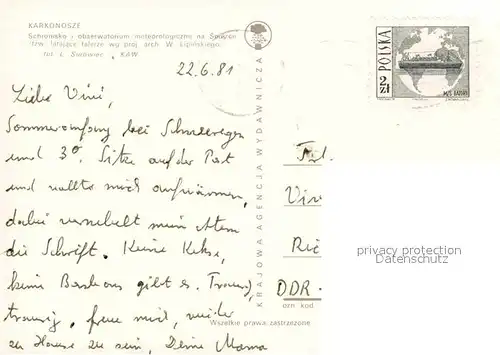 KARKONOSZE
Schronisko i obserwatorium meteorologiczne na Śnieżce
/tzw. latające talerze wg proj. arch. W. Lipińskiego/
fot. L. Surowiec, KAW
22.6.81
POLSKA
2 zł
Liebe Vivi,
Sommeranfang bei Schneeregen
und 3°. Sitze auf der Post
und wollte mich aufwärmen,
dabei vernebelt mein Atem
die Schrift. Keine Kekse,
keine Bonbons gibt es. Traurig,
traurig, freue mich, wieder
zu Hause zu sein, Deine Mama
KRAJOWA AGENCJA WYDAWNICZA
DDR
ozn. kod
Wszelkie prawa zastrzeżone
privacy protection
Datenschutz